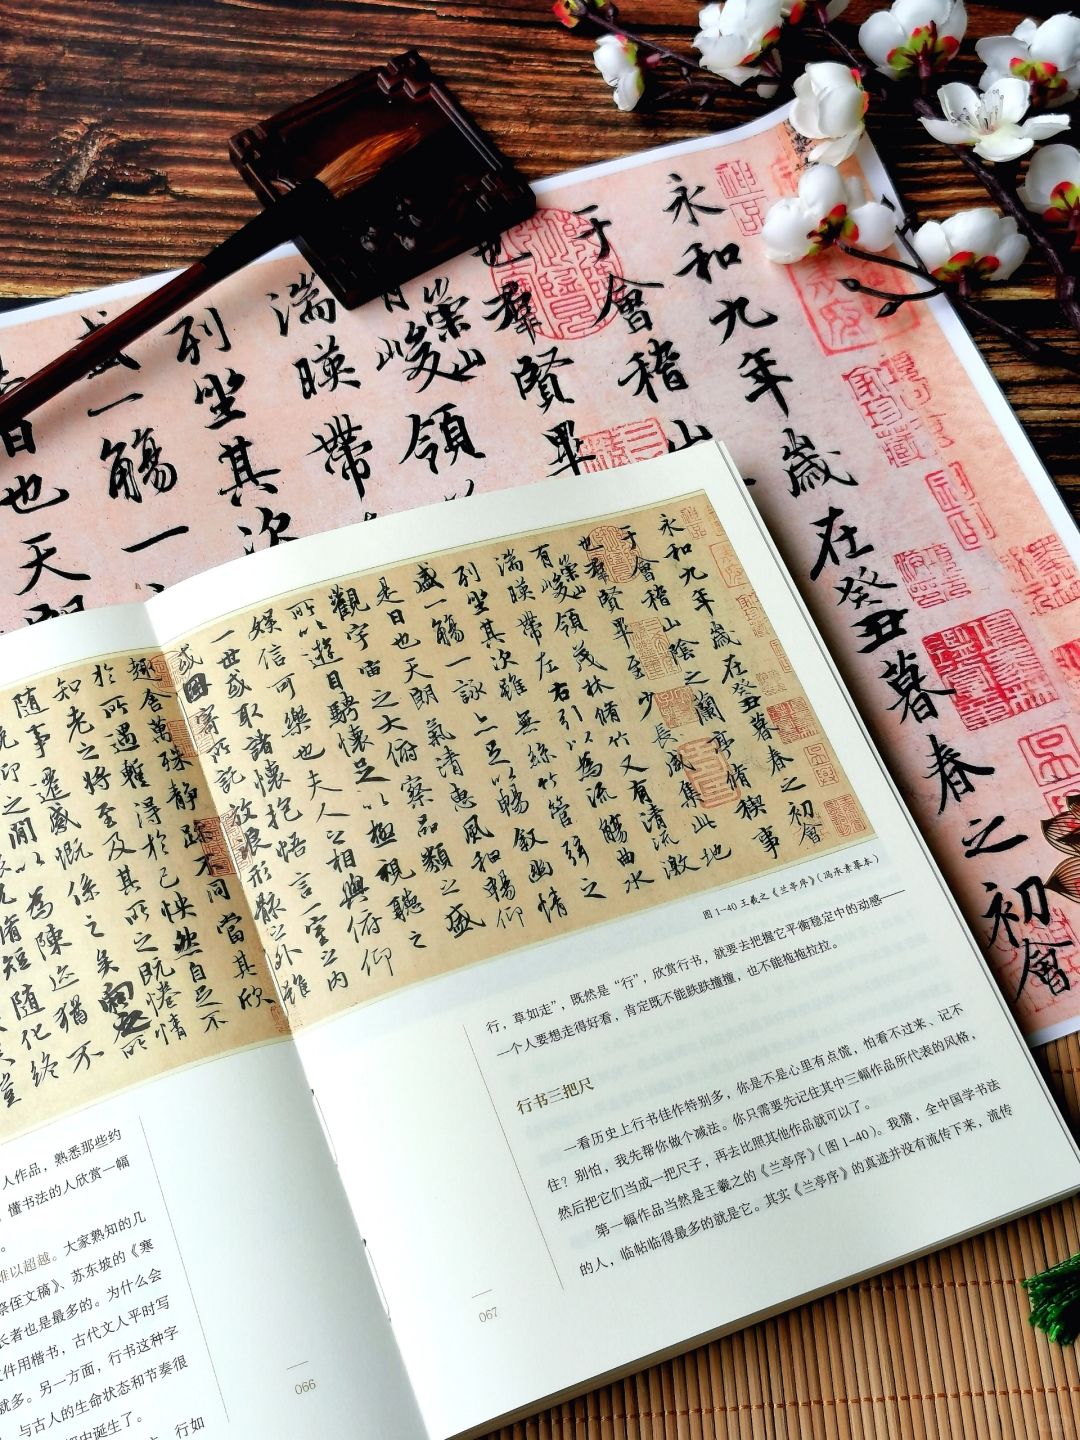 永和九年歲在癸丑暮春之初會
于會稽山
也羣賢畢
有崇山峻領
湍暎帶
列坐其次
盛一觴一
日也天朗
永和九年歲在癸丑暮春之初會
于會稽山陰之蘭亭脩稧事
也羣賢畢至少長咸集此地
有崇山峻領茂林脩竹又有清流激
湍暎帶左右引以為流觴曲水
列坐其次雖無絲竹管弦之
盛一觴一詠亦足以暢敘幽情
是日也天朗氣清惠風和暢仰
觀宇宙之大俯察品類之盛
所以遊目騁懷足以極視聽之
娛信可樂也夫人之相與俯仰
一世或取諸懷抱悟言一室之內
或因寄所託放浪形骸之外雖
趣舍萬殊靜躁不同當其欣
於所遇暫得於己怏然自足不
知老之將至及其所之既惓情
隨事遷感慨係之矣向之所
俛仰之閒以為陳迹猶不
脩短隨化終
图 1-40 王羲之《兰亭序》（冯承素摹本）
人作品，熟悉那些约
懂书法的人欣赏一幅
以超越。大家熟知的几
祭侄文稿》、苏东坡的《寒
长者也是最多的。为什么会
件用楷书，古代文人平时写
就多。另一方面，行书这种字
与古人的生命状态和节奏很
中诞生了。
行如
066
行，草如走”，既然是“行”，欣赏行书，就要去把握它平衡稳定中的动感——
一个人要想走得好看，肯定既不能跌跌撞撞，也不能拖拖拉拉。
行书三把尺
一看历史上行书佳作特别多，你是不是心里有点慌，怕看不过来、记不
住？别怕，我先帮你做个减法。你只需要先记住其中三幅作品所代表的风格，
然后把它们当成一把尺子，再去比照其他作品就可以了。
第一幅作品当然是王羲之的《兰亭序》（图 1-40）。我猜，全中国学书法
的人，临帖临得最多的就是它。其实《兰亭序》的真迹并没有流传下来，流传
067